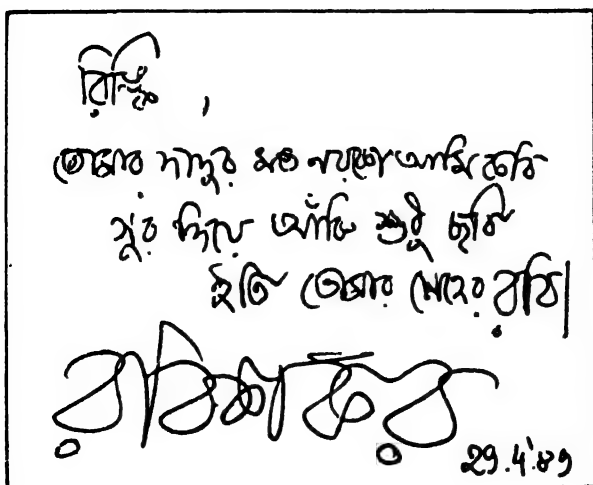 রিঙ্কি,
তোমার দাদুর মত নয়কো আমি কবি
সুর দিয়ে আঁকি শুধু ছবি
ইতি তোমার স্নেহের রবি।
রবিশঙ্কর
29.4.89